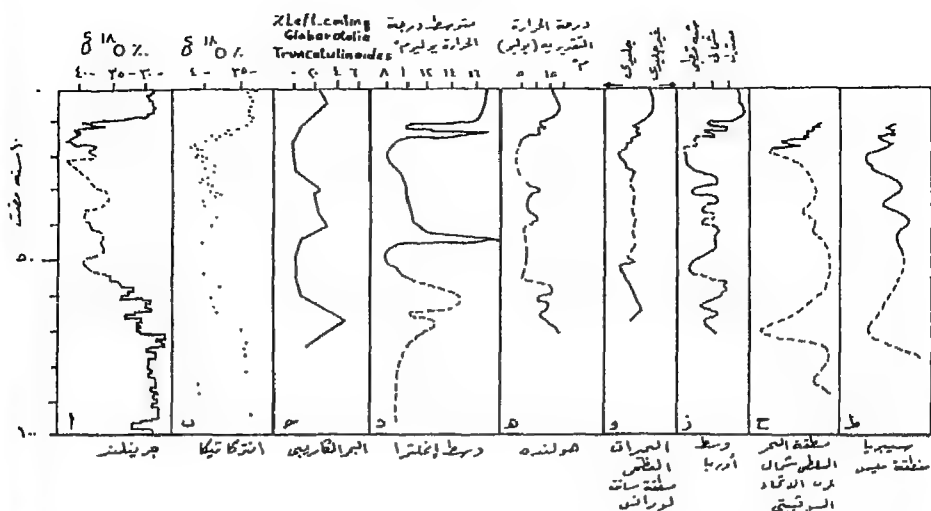 δ ¹⁸O ٪.
٤٠٠ ٣٥٠ ٣٠٠
δ ¹⁸O ٪.
٤٠ ٣٥
%Left.coiling
Globorotalia
Truncatulinoides
٠ ٢٠ ٤٠ ٦٠
متوسط درجة
الحرارة يوليو م°
٨ ١٠ ١٢ ١٤ ١٦
درجة الحرارة
التقريبية (يوليو)
م°
٥ ١٥
جليدى
غير جليدى
شمال
٠
٥٠
١٠٠
أ
ب
ج
د
ه
و
ز
ح
ط
جرينلند
انتركاتيكا
البحر الكاريبى
وسط إنجلترا
هولنده
البحيرات
العظمى
منطقة سانت
لورانس
وسط
أوربا
منطقة البحر
البلطى شمال
غرب الاتحاد
السوفيتى
سيبيريا